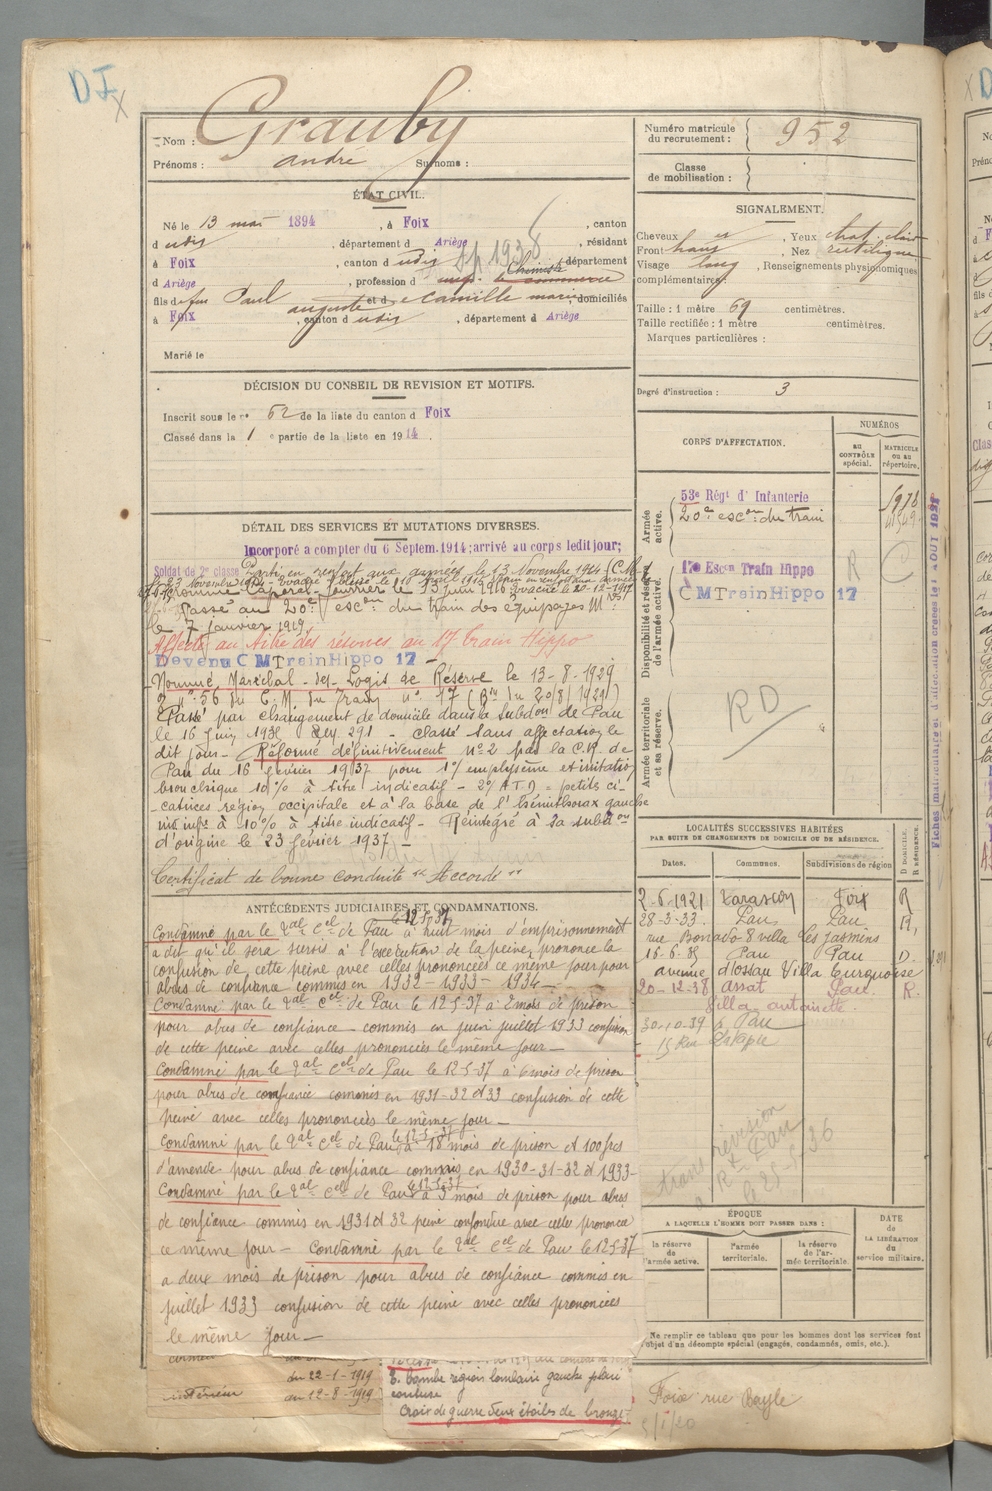 DI
Nom : Grauby
Prénoms : andré Surnoms :
ÉTAT CIVIL.
Né le 13 mai 1894, à Foix, canton
d udis, département d Ariège, résidant
à Foix, canton d udis, département
d Ariège, profession d Chimiste
fils de feu Paul auguste et de Camille marie domiciliés
à Foix, canton d udis, département d Ariège
Sp 1938
Marié le
DÉCISION DU CONSEIL DE REVISION ET MOTIFS.
Inscrit sous le n° 62 de la liste du canton d Foix
Classé dans la 1 e partie de la liste en 1914.
DÉTAIL DES SERVICES ET MUTATIONS DIVERSES.
Incorporé a compter du 6 Septem. 1914; arrivé au corps ledit jour;
Soldat de 2e classe Parti en renfort aux armées le 13 Novembre 1914
Nommé Caporal-fourrier le 13 juin 1916
Passé au 20e escon du train des équipages Mres
le 7 janvier 1919.
Affecté au titre des réserves au 17 train Hippo
Devenu C M Train Hippo 17 -
Nommé Maréchal-des-Logis de Réserve le 13-8-1929
O n° 56 du C.M. du Train n° 17 (Bn du 20/8/1929)
Passé par changement de domicile dans la subdon de Pau
le 16 juin 1935 Rey 291 - classé sans affectation le
dit jour - Réformé définitivement n° 2 par la C.R. de
Pau du 16 février 1937 pour 1°/ emphysème et irritation
bronchique 10% à titre indicatif - 2°/ ATD = petites ci-
-catrices région occipitale et à la base de l'hémithorax gauche
inf. à 10% à titre indicatif - Réintégré à sa subdon
d'origine le 23 février 1937 -
Certificat de bonne conduite "Accordé"
ANTÉCÉDENTS JUDICIAIRES ET CONDAMNATIONS.
le 12-5-37
Condamné par le Tal Cel de Pau à huit mois d'emprisonnement
a dit qu'il sera sursis à l'exécution de la peine, prononce la
confusion de cette peine avec celles prononcées ce même jour pour
abus de confiance commis en 1932-1933-1934 -
Condamné par le Tal Cel de Pau le 12-5-37 à 2 mois de prison
pour abus de confiance - commis en juin juillet 1933 confusion
de cette peine avec celles prononcées le même jour -
Condamné par le Tal Cel de Pau le 12-5-37 à 6 mois de prison
pour abus de confiance commis en 1931-32 et 33 confusion de cette
peine avec celles prononcées le même jour -
Condamné par le Tal Cel de Pau le 12-5-37 à 18 mois de prison et 100 frcs
d'amende pour abus de confiance commis en 1930-31-32 et 1933-
Condamné par le Tal Cel de Pau le 12-5-37 à 3 mois de prison pour abus
de confiance commis en 1931 et 32 peine confondue avec celles prononcée
ce même jour - Condamné par le Tal Cel de Pau le 12-5-37
a deux mois de prison pour abus de confiance commis en
juillet 1933 confusion de cette peine avec celles prononcées
le même jour -
du 22-1-1919
intérieur au 12-8-1919
E. bombe région lombaire gauche plaie
contuse
Croix de guerre deux étoiles de bronze
Numéro matricule du recrutement : 952
Classe de mobilisation :
SIGNALEMENT.
Cheveux, Yeux chat. clair
Front haut, Nez rectiligne
Visage long, Renseignements physionomiques
complémentaires :
Taille : 1 mètre 69 centimètres.
Taille rectifiée : 1 mètre centimètres.
Marques particulières :
Degré d'instruction : 3
CORPS D'AFFECTATION.
NUMÉROS
AU CONTRÔLE spécial.
MATRICULE OU AU répertoire.
Armée active.
53e Régt d'Infanterie
20e escon du train
Disponibilité et réserve de l'armée active.
17e Escon Train Hippo
C M Train Hippo 17
R
Armée territoriale et sa réserve.
RD
LOCALITÉS SUCCESSIVES HABITÉES
PAR SUITE DE CHANGEMENTS DE DOMICILE OU DE RÉSIDENCE.
Dates. Communes. Subdivisions de région
D DOMICILE. R RÉSIDENCE.
2-6-1921 Tarascon Foix R
28-3-33. Pau Pau R,
rue Bonado 8 villa les Jasmins
16-6-35 Pau Pau D.
avenue d'Ossau Villa Turquoise
20-12-38 Assat Pau. R.
Villa antoinette.
30-10-39 Pau
15 Rue Latapie
trans révision
Rt Pau
le 25-5-36
ÉPOQUE
A LAQUELLE L'HOMME DOIT PASSER DANS :
la réserve de l'armée active.
l'armée territoriale.
la réserve de l'armée territoriale.
DATE de LA LIBÉRATION du service militaire.
Ne remplir ce tableau que pour les hommes dont les services font
l'objet d'un décompte spécial (engagés, condamnés, omis, etc.).
Foix rue Bayle
5/1/20
Fiches matriculaire et d'affectation créées le 1 AOUT 1921